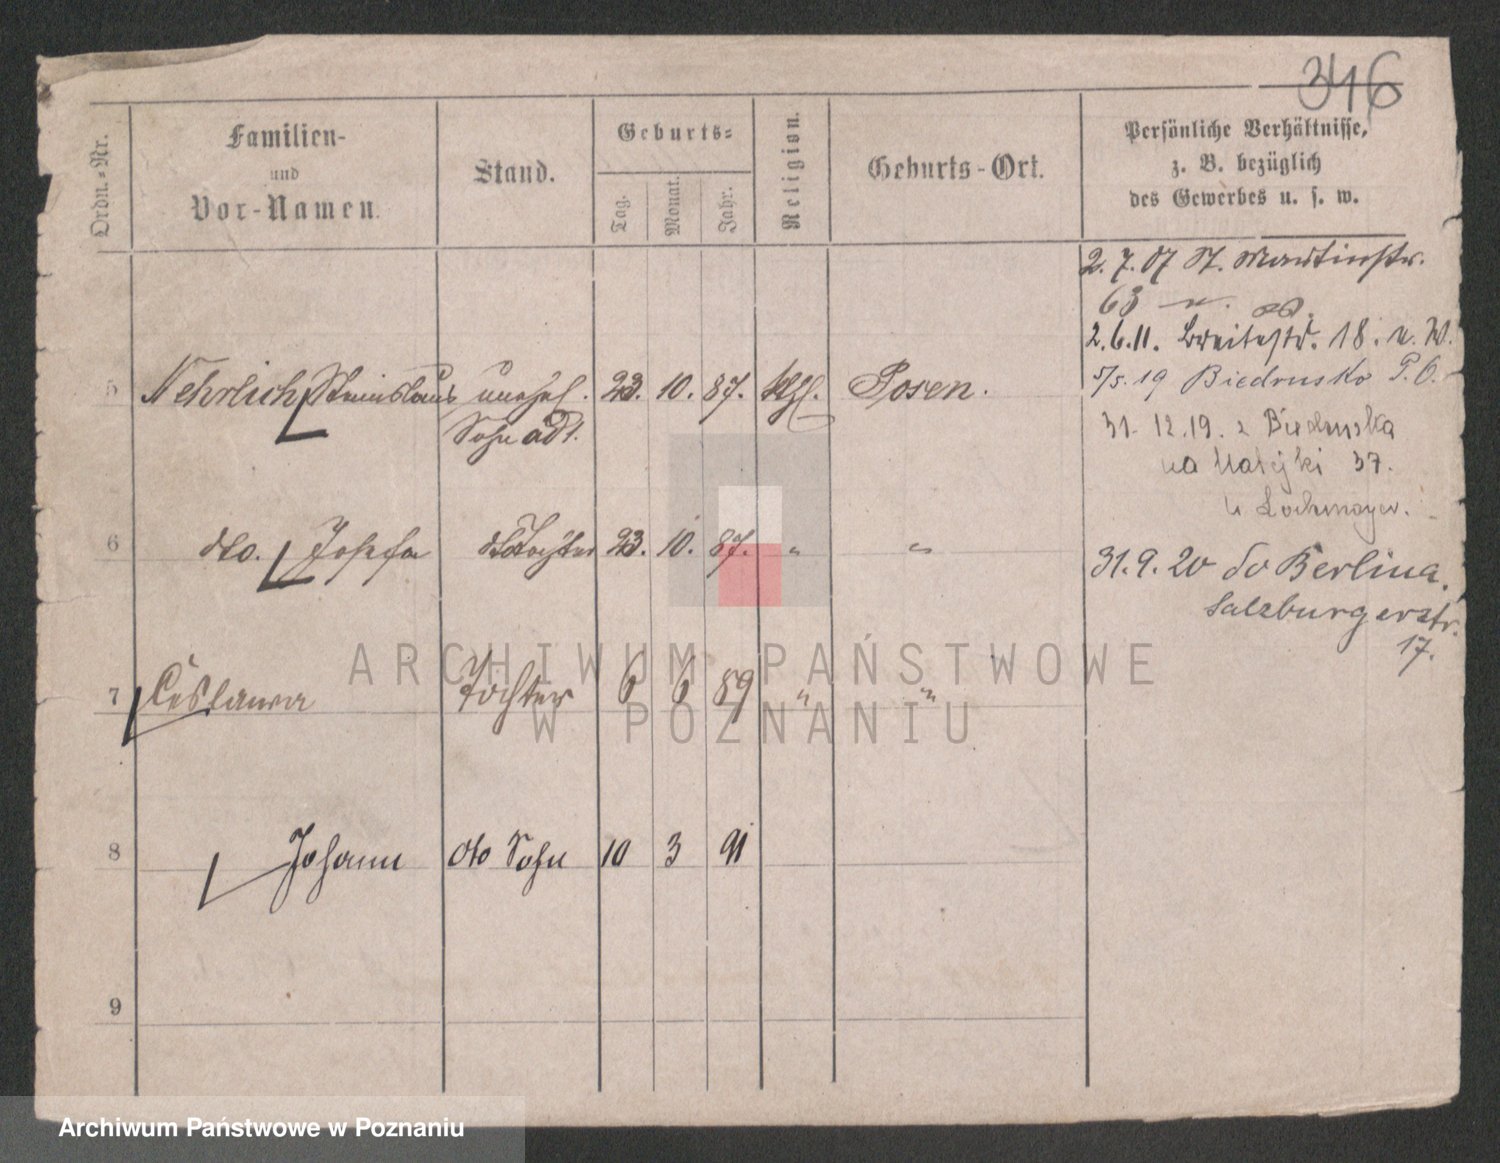 346
Ordn.-Nr.
Familien-
und
Vor-Namen.
Stand.
Geburts-
Tag.
Monat.
Jahr.
Religion.
Geburts-Ort.
Persönliche Verhältnisse,
z. B. bezüglich
des Gewerbes u. s. w.
2. 7. 07 St. Martinstr.
63
2. 6. 11. Breitestr. 18. v. W.
5/5. 19 Biedrusko P. O.
31. 12. 19. z Biedruska
na Matejki 37.
u Lochmayer.
31. 9. 20 do Berlina.
Salzburgerstr.
17.
5 Nehrlich Stanislaus unehel. 23. 10. 87. kthl. Posen.
Sohn adt.
6 dto. Josefa dto Tochter 23. 10. 87. " "
7 Ceslawa Tochter 6 6 89 " "
8 Johann dto Sohn 10 3 91
9
ARCHIWUM PAŃSTWOWE
W POZNANIU
Archiwum Państwowe w Poznaniu